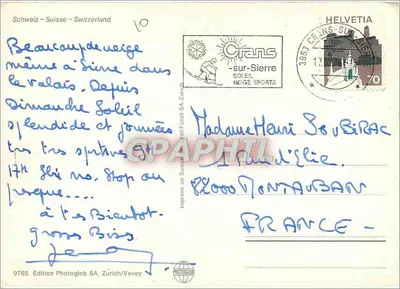 Schweiz - Suisse - Switzerland
10
Beaucoup de neige
même à Sierre dans
le Valais. Depuis
Dimanche Soleil
splendide et journées
très très sportives 9h
17h Ski no. Stop ou
presque....
à très Bientôt.
grosses Bises
9765 Edition Photoglob SA, Zürich/Vevey
Imprimé en Suisse
Crans
-sur-Sierre
SOLEIL
NEIGE SPORTS
3963 CRANS-SUR-SIERRE
HELVETIA
70
CPAPHIL
Madame Henri SouBiRAC
1 Rue d'Elie.
82000 MONTAUBAN
FRANCE -